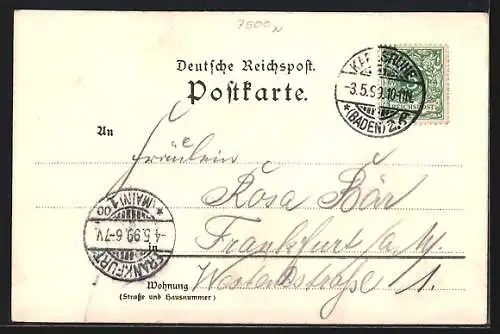 7500 N
Deutsche Reichspost.
Postkarte.
KARLSRUHE
-3.5.99.10-11N.
*(BADEN)2.*
REICHSPOST
An
Fräulein
Rosa Bär
Frankfurt a. M.
in
Wohnung
(Straße und Hausnummer)
1.
*(MAIN)1
4.5.99.6-7V.
FRANKFURT